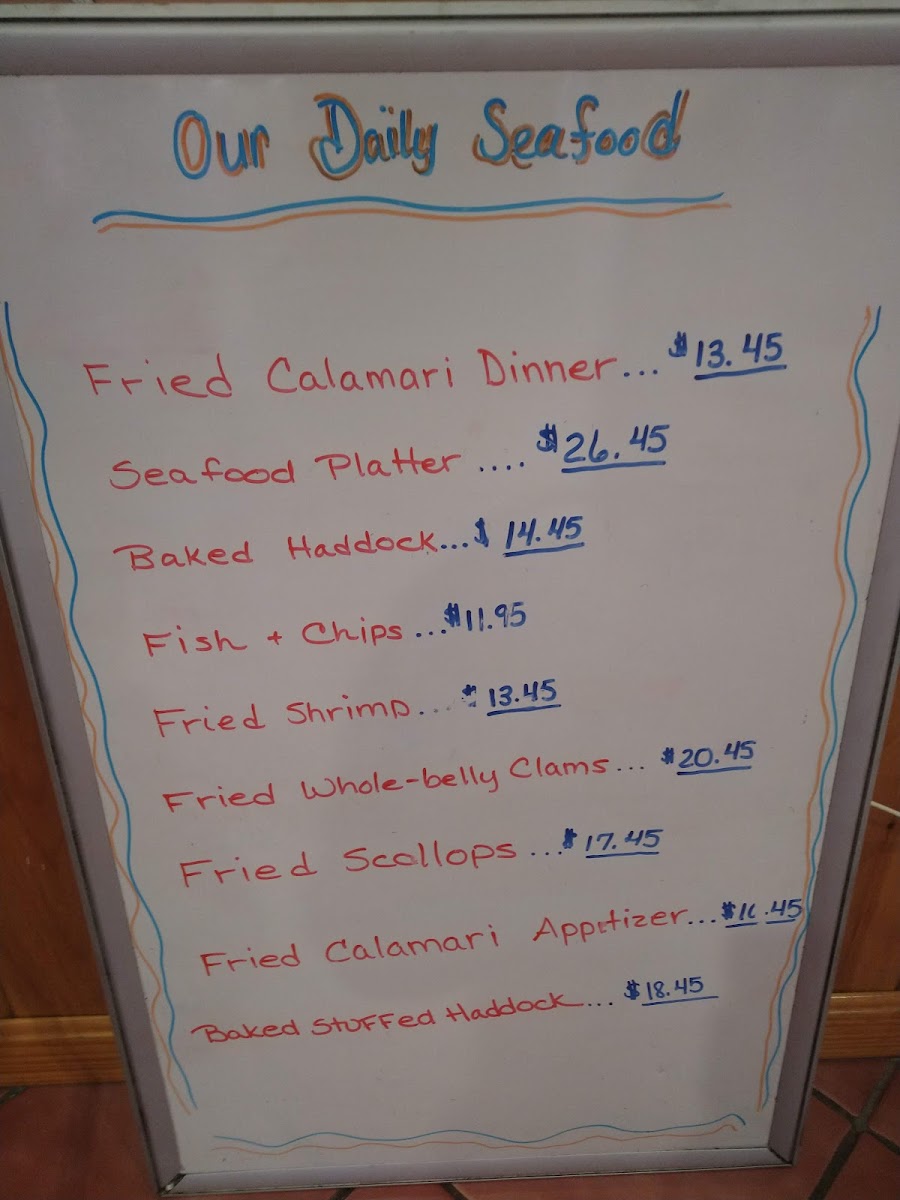 Our Daily Seafood
Fried Calamari Dinner... $13.45
Seafood Platter .... $26.45
Baked Haddock...$ 14.45
Fish + Chips ...$11.95
Fried Shrimp... $ 13.45
Fried Whole-belly Clams... $20.45
Fried Scallops ...$ 17.45
Fried Calamari Appetizer...
Baked Stuffed Haddock... $18.45